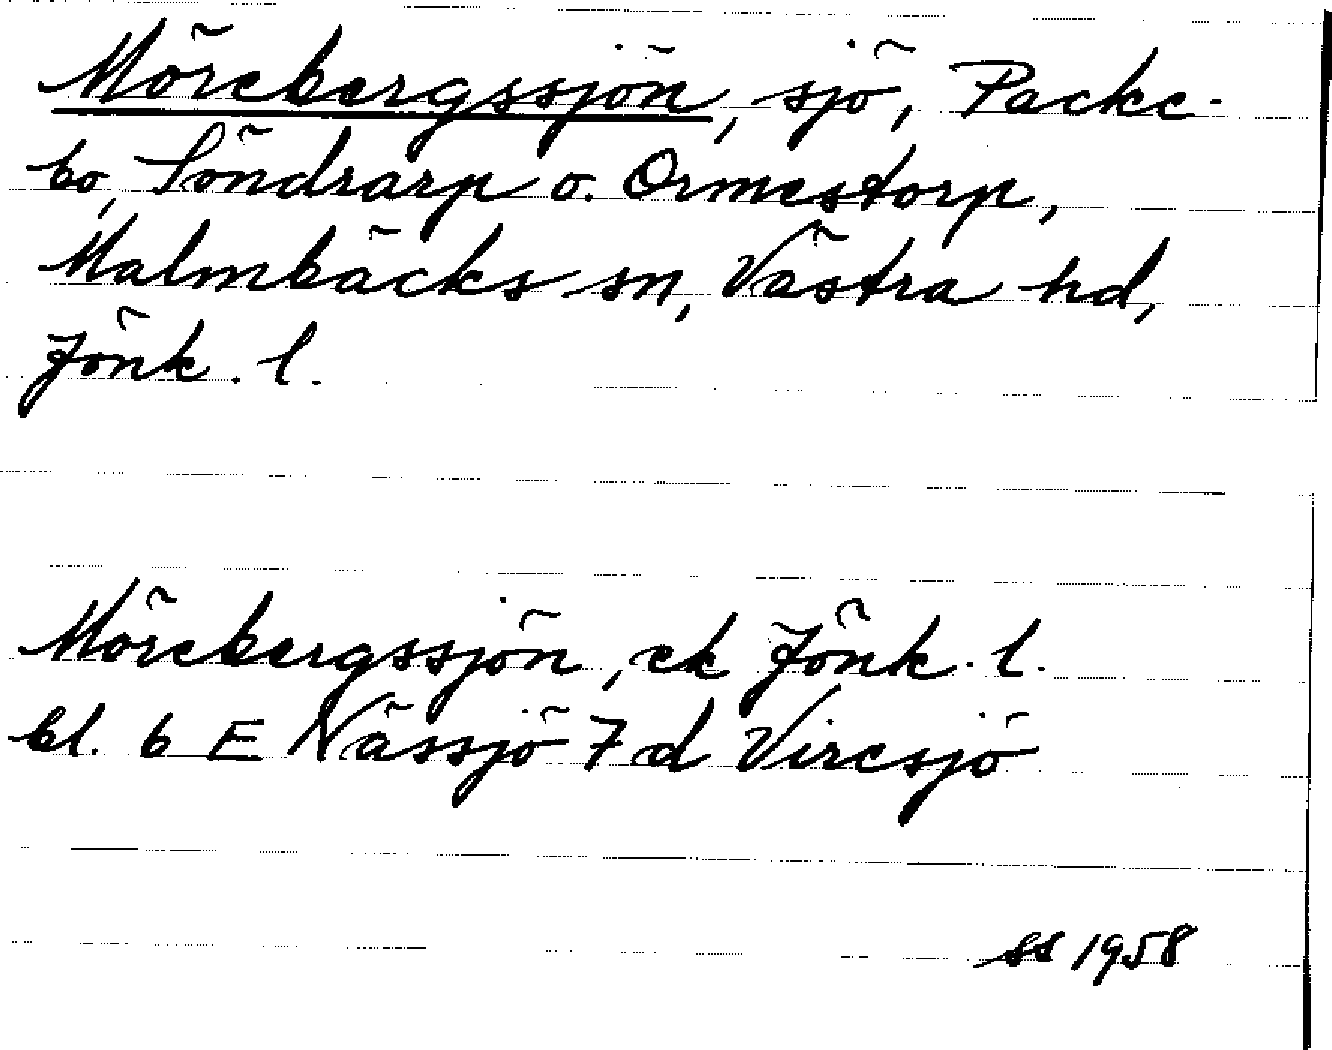 Mörebergssjön, sjö, Packe-
bo, Söndrarp o. Ormestorp,
Malmbäcks sn, Västra hd,
Jönk. l.
Mörebergssjön, ek Jönk. l.
bl. 6 E Nässjö 7 d Viresjö
SS 1958